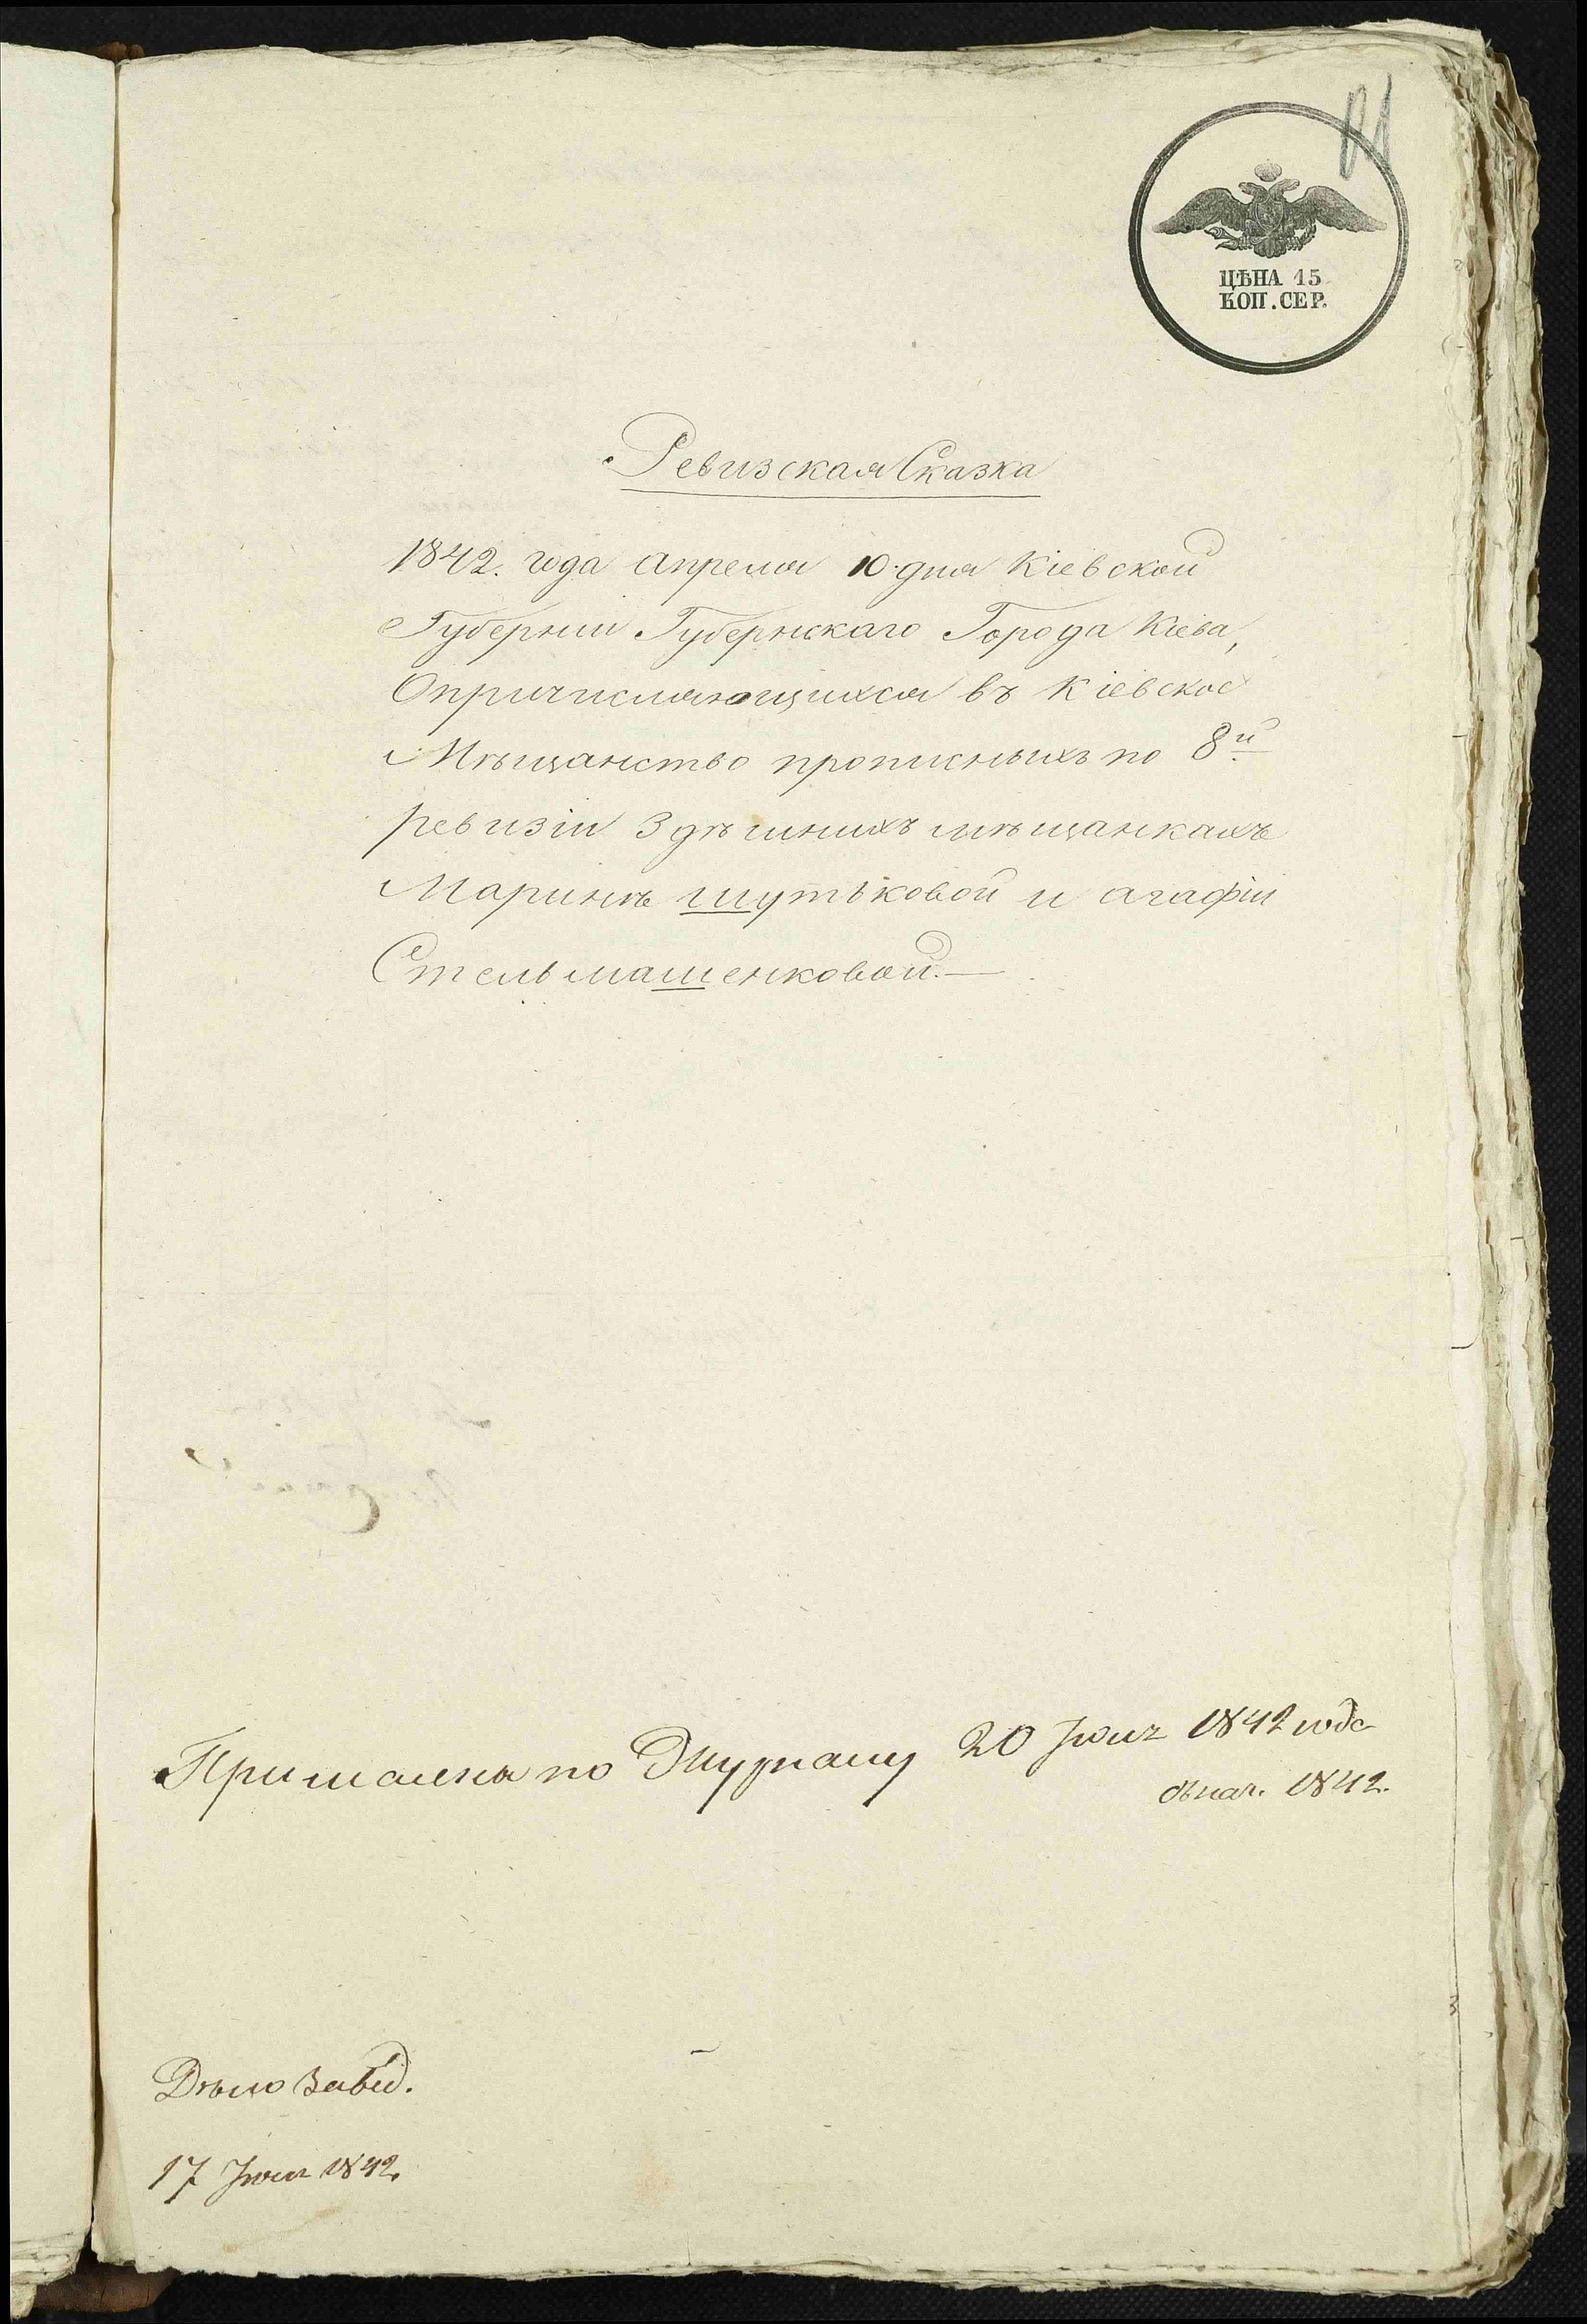 ЦѢНА 15
КОП. СЕР.
Ревизская Сказка
1842. года апреля 10. дня Кіевской
Губерніи Губернскаго Города Кіева,
Опричисляющихся въ Кіевское
Мѣщанство прописныхъ по 8й
ревизіи Здѣшнихъ мѣщанкахъ
Маринѣ шутьковой и агафіи
Стельмашенковой.—
по Журналу 20 1842 года
1842.
Дѣло
17 1842.